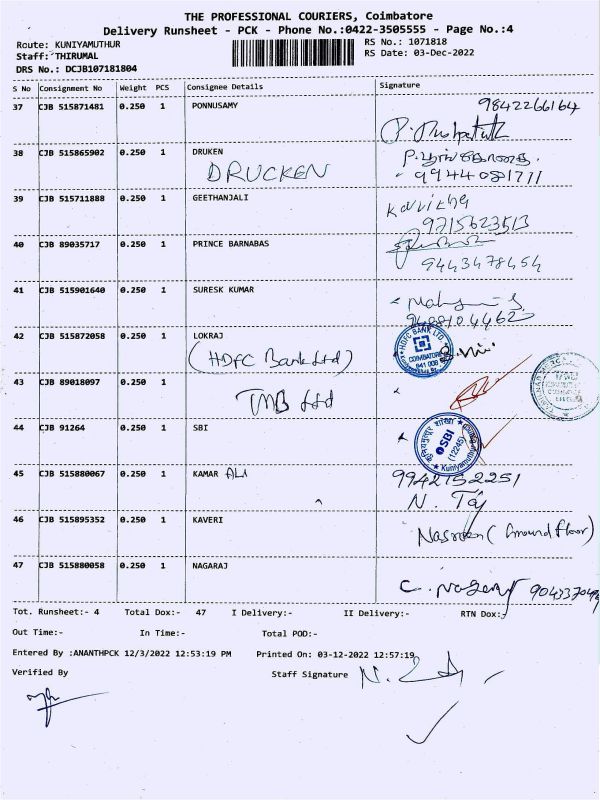 THE PROFESSIONAL COURIERS, Coimbatore
Delivery Runsheet - PCK - Phone No.:0422-3505555 - Page No.:4
Route: KUNIYAMUTHUR
RS No.: 1071818
Staff: THIRUMAL
RS Date: 03-Dec-2022
DRS No.: DCJB107181804
S No Consignment No Weight PCS Consignee Details Signature
37 CJB 515871481 0.250 1 PONNUSAMY 9842266164
38 CJB 515865902 0.250 1 DRUKEN
DRUCKEN
9944081711
39 CJB 515711888 0.250 1 GEETHANJALI Kavitha
9715623513
40 CJB 89035717 0.250 1 PRINCE BARNABAS
9443478454
41 CJB 515901640 0.250 1 SURESK KUMAR
9488104462
42 CJB 515872058 0.250 1 LOKRAJ
(HDFC Bank Ltd)
HDFC BANK LTD
COIMBATORE
641 008
43 CJB 89018097 0.250 1
TMB Ltd
44 CJB 91264 0.250 1 SBI
SBI
(12245)
Kuniyamuthur
45 CJB 515880067 0.250 1 KAMAR ALI 9942152251
N. Taj
46 CJB 515895352 0.250 1 KAVERI
Nasreen (Ground floor)
47 CJB 515880058 0.250 1 NAGARAJ
Tot. Runsheet:- 4 Total Dox:- 47 I Delivery:- II Delivery:- RTN Dox:-
Out Time:- In Time:- Total POD:-
Entered By :ANANTHPCK 12/3/2022 12:53:19 PM Printed On: 03-12-2022 12:57:19
Verified By
Staff Signature